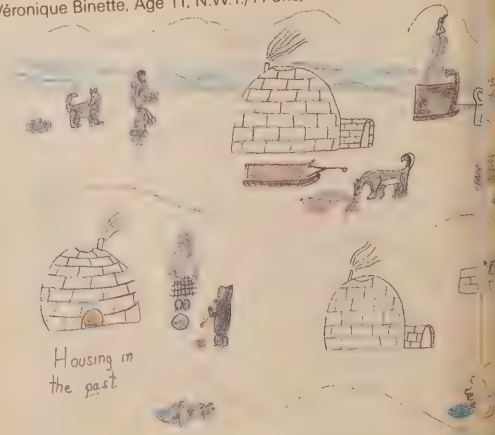 Véronique Binette, Age 11, N.W.T./
Housing in
the past